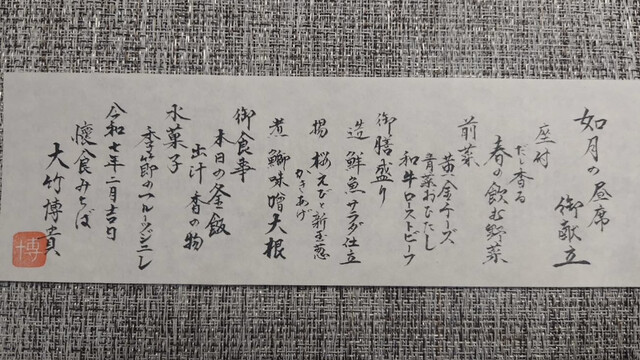 如月の昼席
御献立
座付
だし香る
春の飲む野菜
前菜
黄金チーズ
青菜おひたし
和牛ローストビーフ
御膳盛り
造 鮮魚サラダ仕立
揚 桜えびと新玉葱
かきあげ
煮 鰤味噌大根
御食事
本日の釜飯
出汁 香の物
水菓子
季節のブルーマンジェ
令和七年二月吉日
懐食みちば
大竹博貴
博